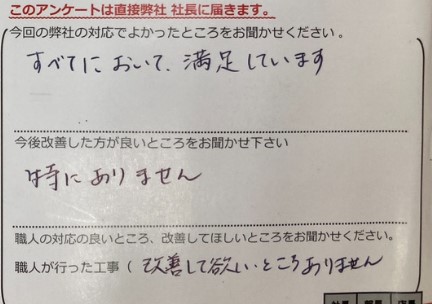 このアンケートは直接弊社 社長に届きます。
今回の弊社の対応でよかったところをお聞かせください。
すべてにおいて、満足しています
今後改善した方が良いところをお聞かせ下さい
特にありません
職人の対応の良いところ、改善してほしいところをお聞かせください。
職人が行った工事（ 改善して欲しいところありません